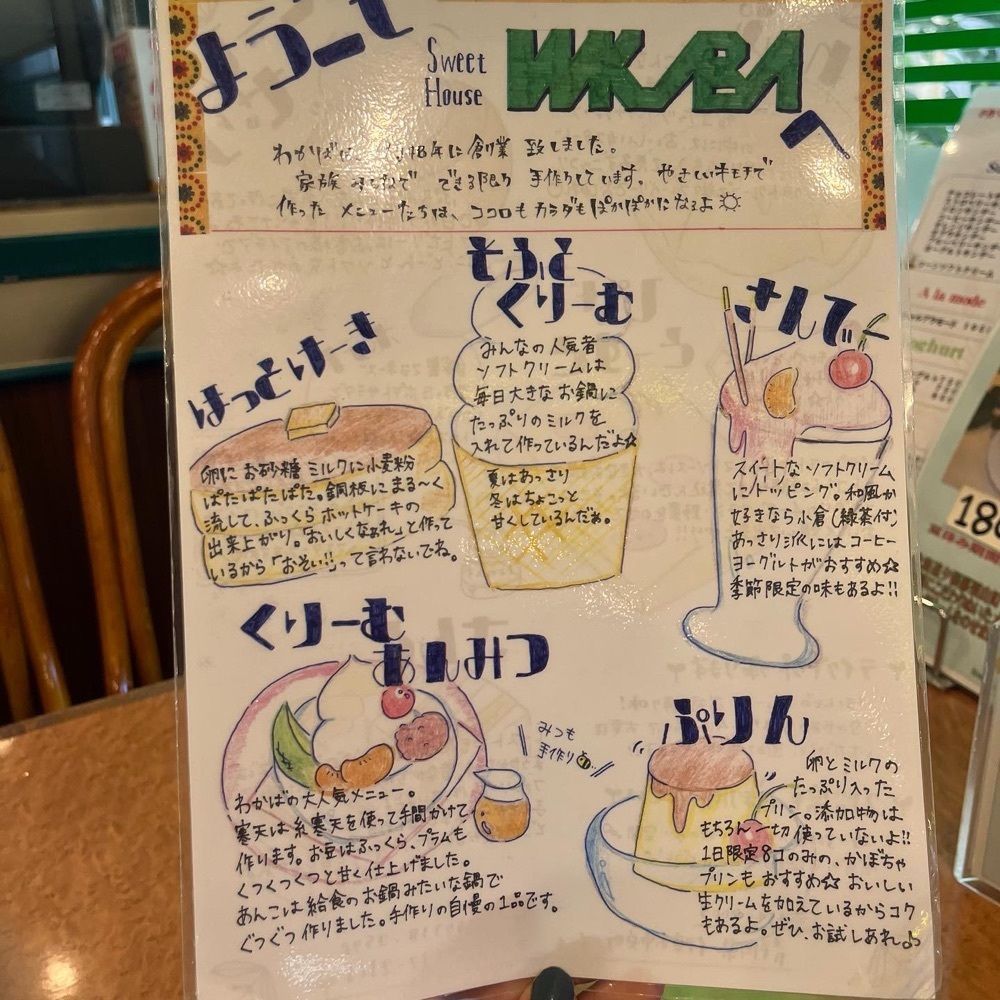 ようこそ
Sweet
House
WAKABA
へ
わかばは、 年に創業 致しました。
家族みんなで できる限り 手作りしています。やさしいキモチで
作った メニューたちは、ココロもカラダもぽかぽかになるよ
はっとけーき
卵に お砂糖 ミルクに小麦粉
ぱたぱたぱた。銅板にまる〜く
流して、ふっくら ホットケーキの
出来上がり。「おいしくなぁれ」と作って
いるから「おそい!!」って言わないでね。
そふと
くりーむ
みんなの人気者
ソフトクリームは
毎日大きな お鍋に
たっぷりのミルクを
入れて作っているんだよ☆
夏はあっさり
冬はちょこっと
甘くしているんだぁ。
さんでー
スイートな ソフトクリーム
にトッピング。和風が
好きなら小倉(緑茶付)
あっさり派には コーヒー
ヨーグルトがおすすめ☆
季節限定の味もあるよ!!
くりーむ
あんみつ
みつも
手作り
わかばの大人気メニュー。
寒天は糸寒天を使って手間かけて
作ります。お豆はふっくら、プラムも
くつくつくつと甘く仕上げました。
あんこは給食のお鍋みたいな鍋で
ぐつぐつ作りました。手作りの自慢の1品です。
ぷりん
卵とミルクの
たっぷり入った
プリン。添加物は
もちろん一切使っていないよ!!
1日限定8コのみの、かぼちゃ
プリンも おすすめ☆ おいしい
生クリームを加えているからコク
もあるよ。ぜひ、お試しあれ♪
A la mode